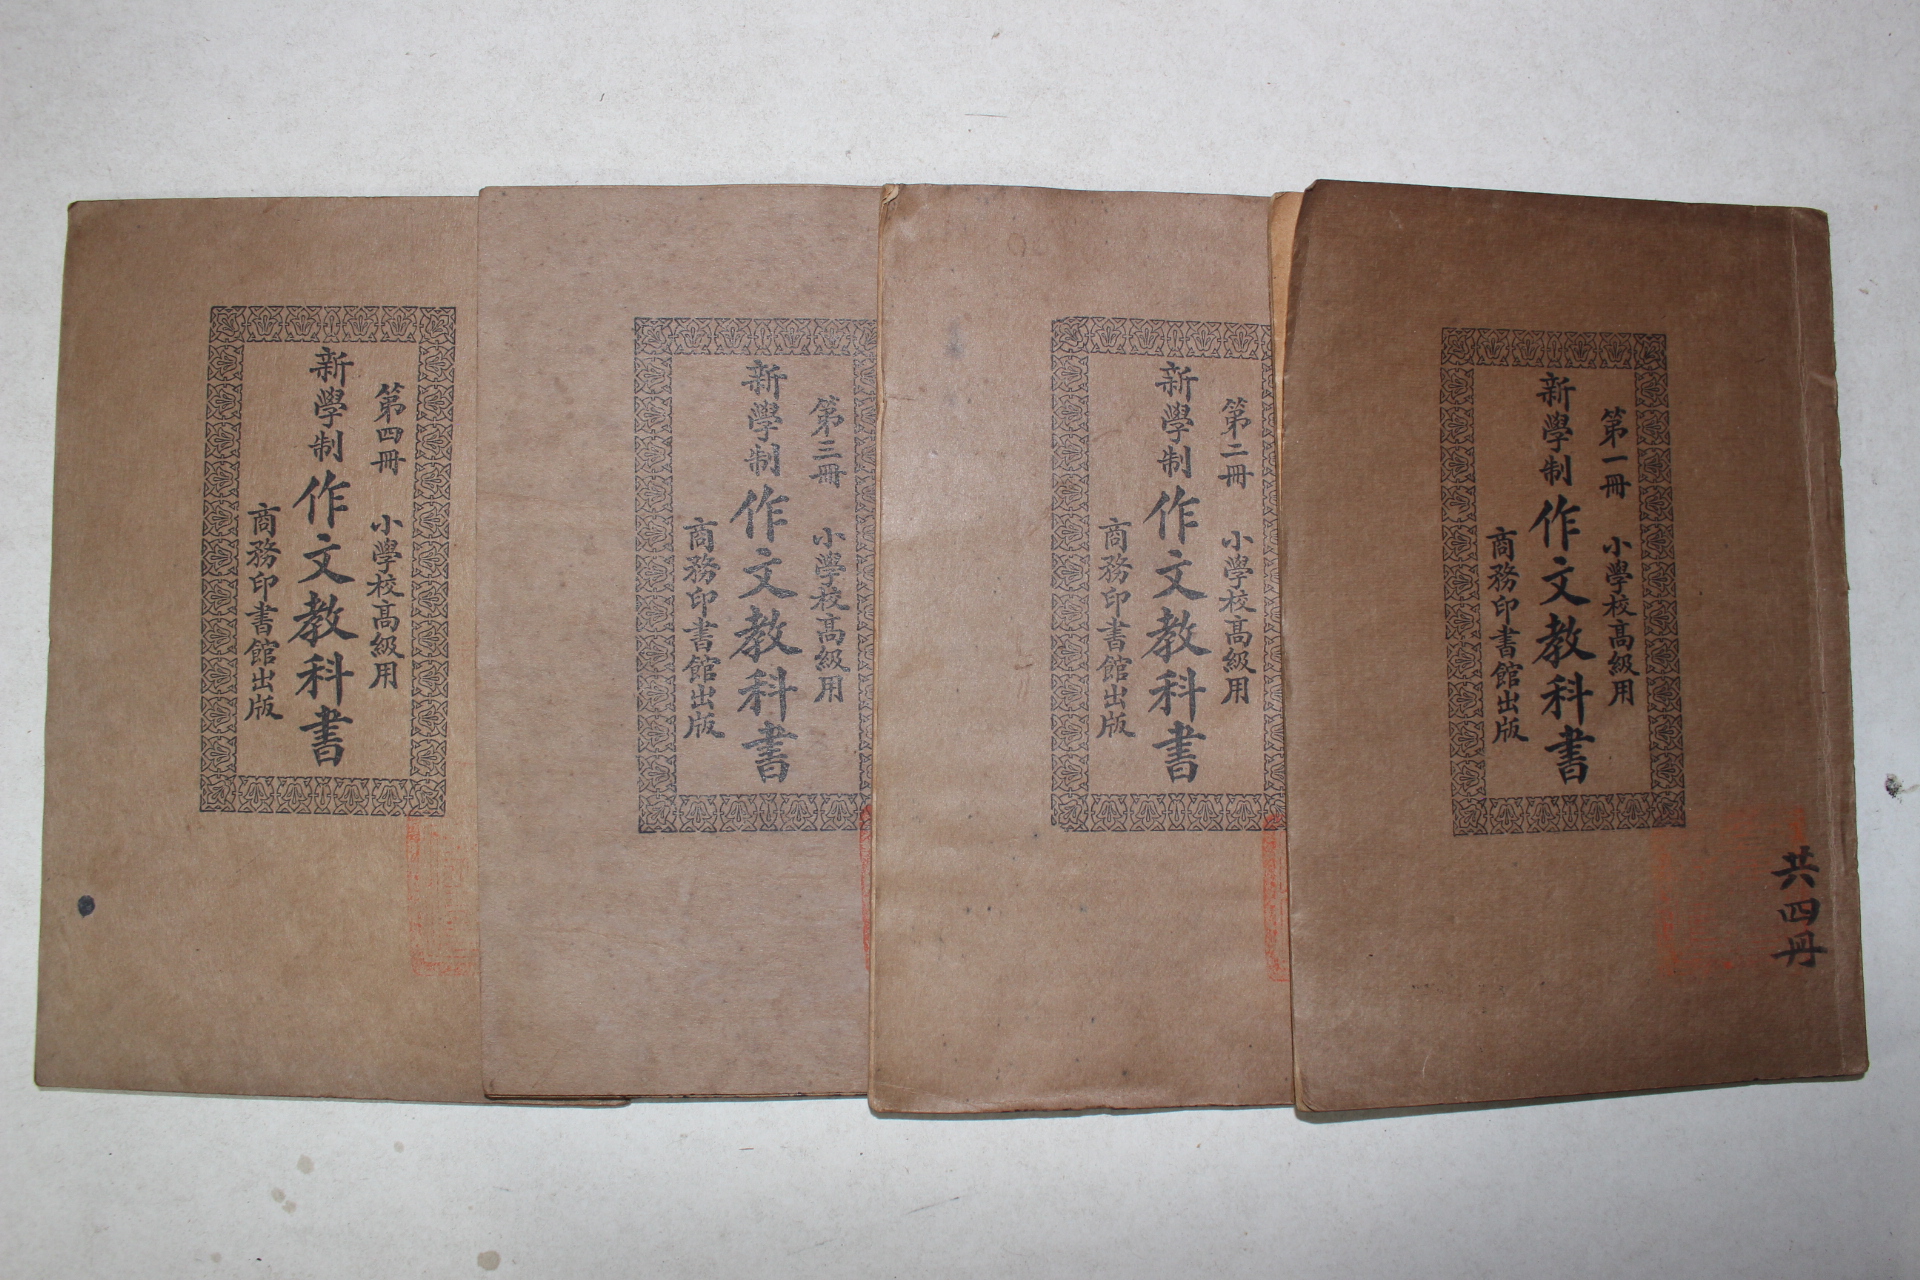 第一冊 小學校高級用
新學制作文教科書
商務印書館出版
共四冊
第二冊 小學校高級用
新學制作文教科書
商務印書館出版
第三冊 小學校高級用
新學制作文教科書
商務印書館出版
第四冊 小學校高級用
新學制作文教科書
商務印書館出版